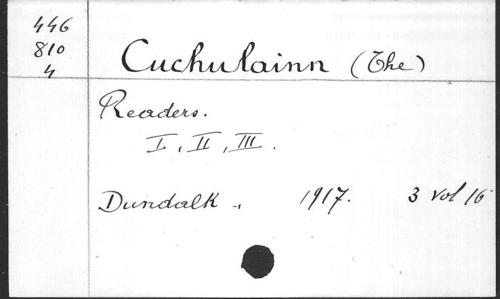 446
810
4
Cuchulainn (The)
Readers.
I, II, III.
Dundalk. 1917. 3 vol 16